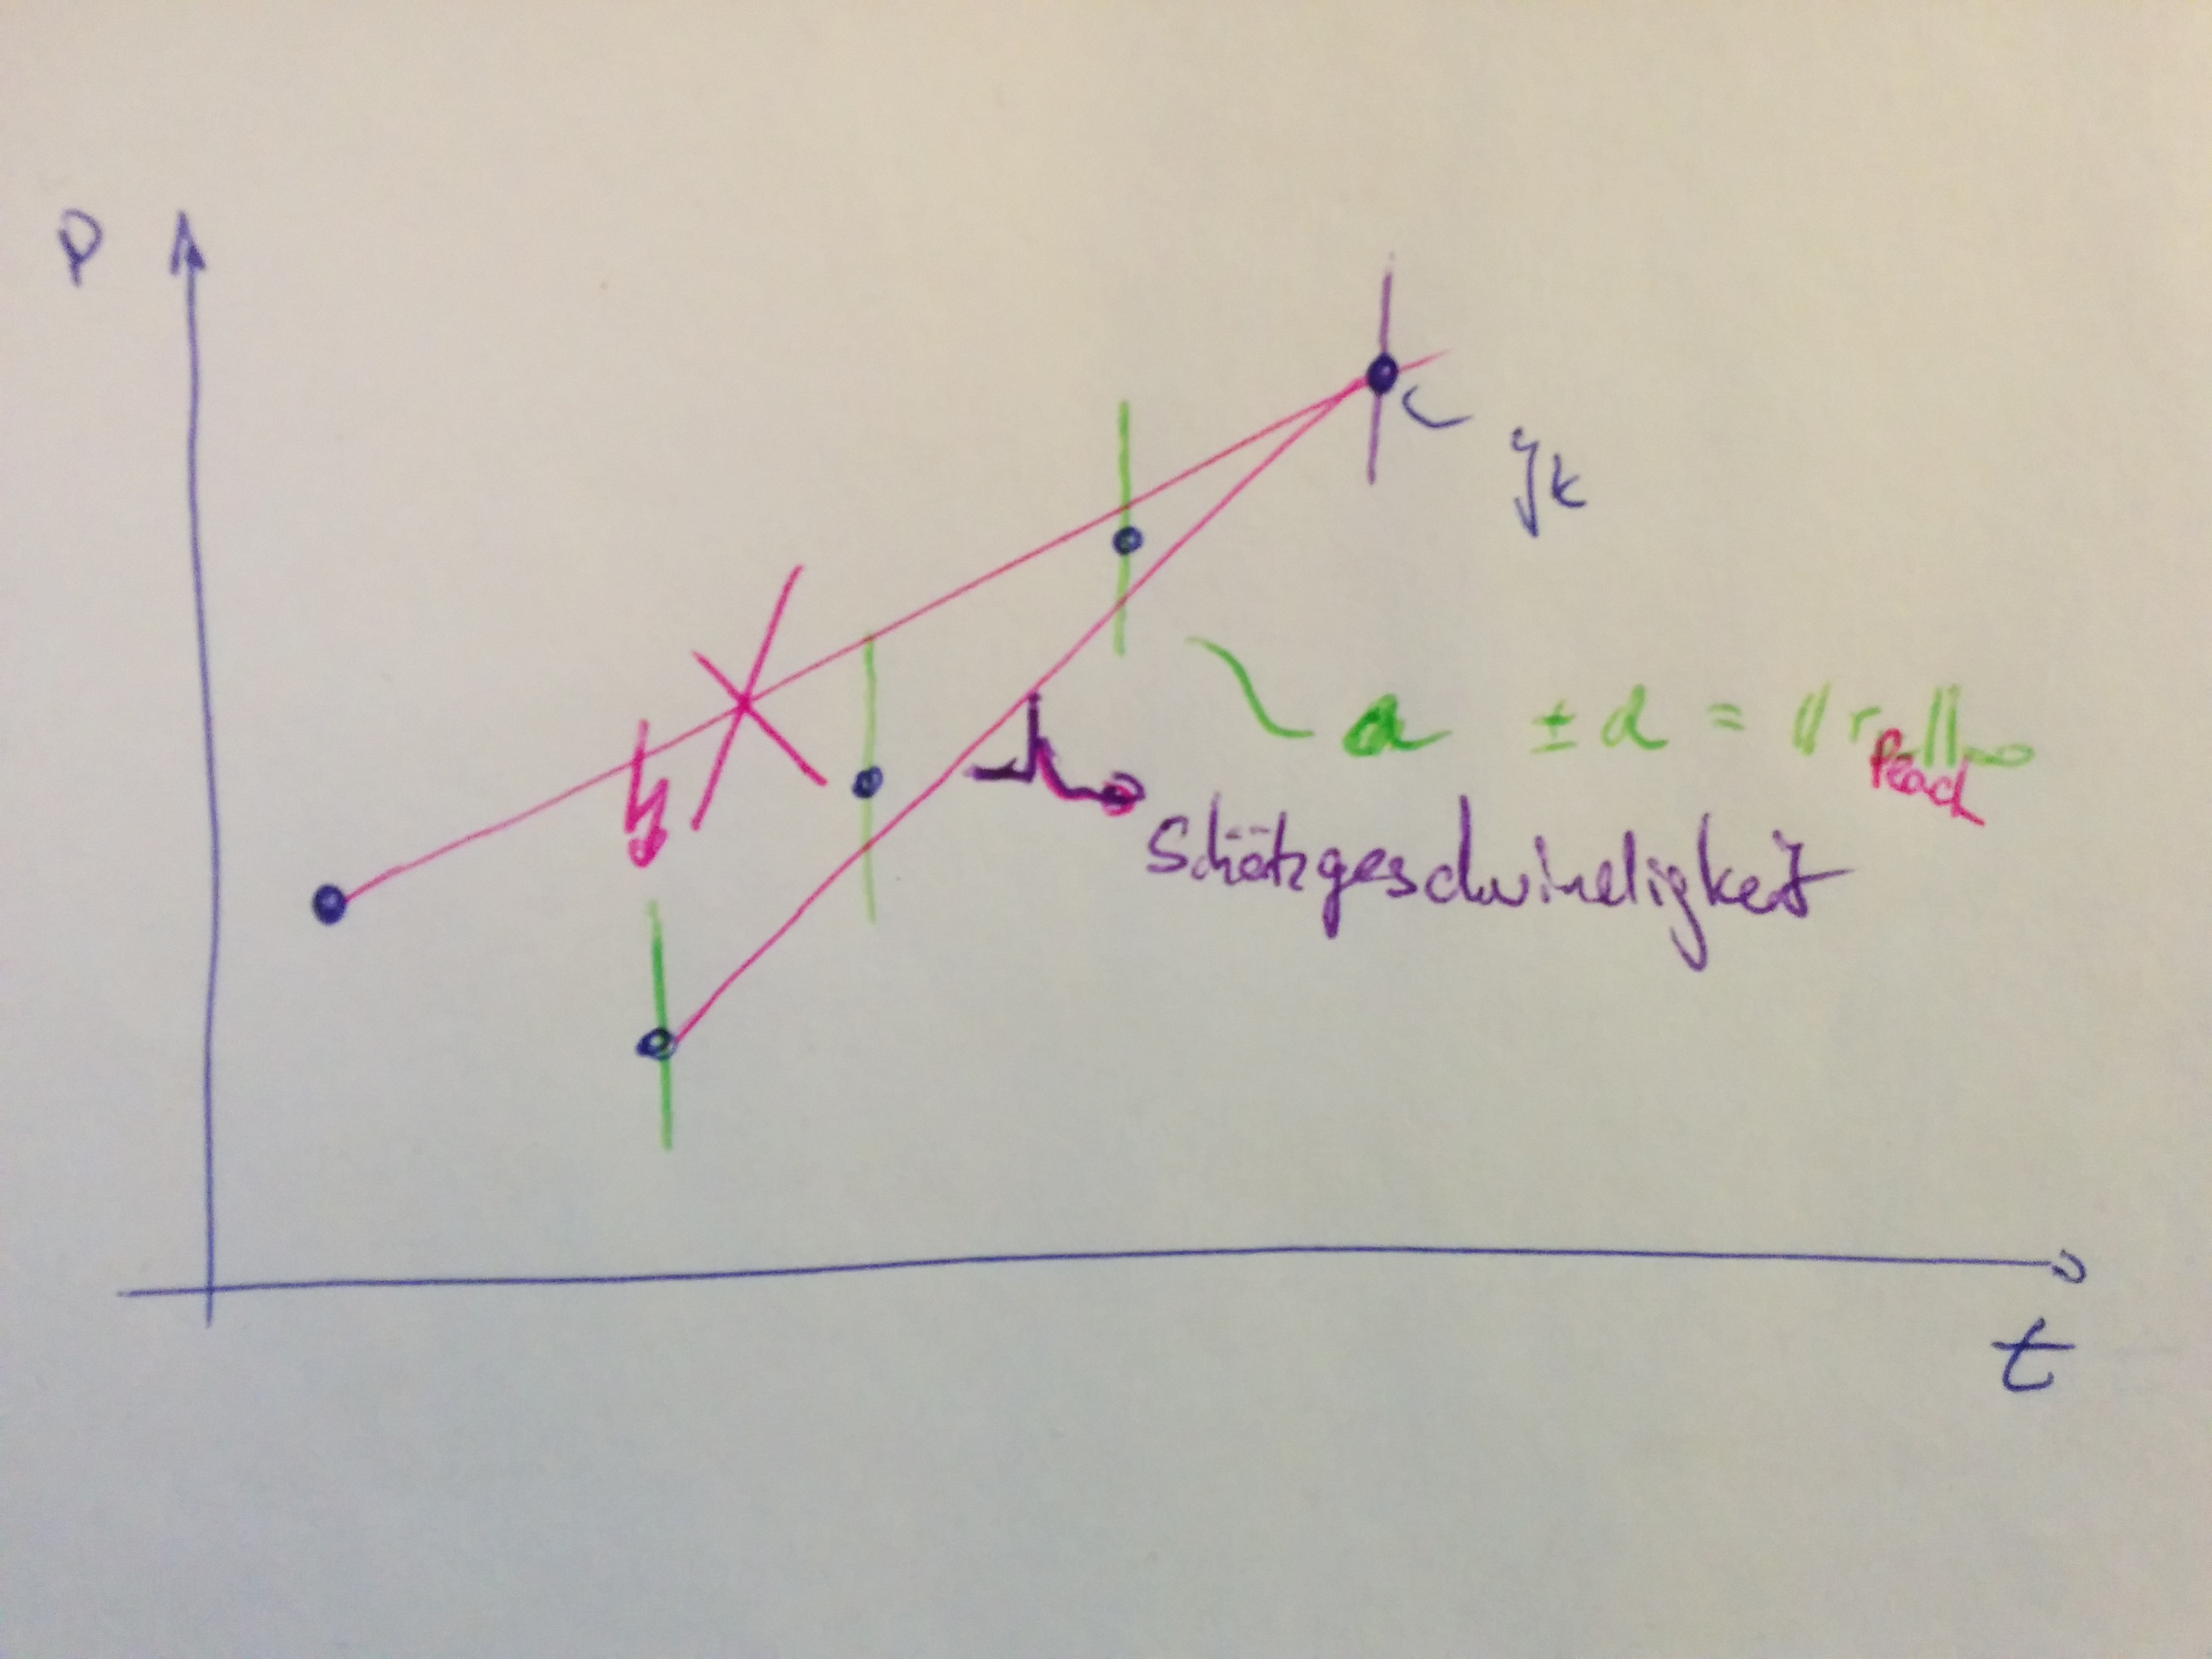 P
yk
± d = ||r Peach||∞
Schätzgeschwindigkeit
t